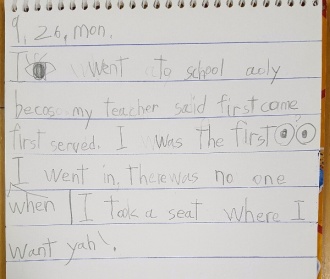 9, 26, mon.
I went to school aoly
becoso my teacher said first come
first served. I was the first
I went in, there was no one
when I took a seat where I
want yah!.